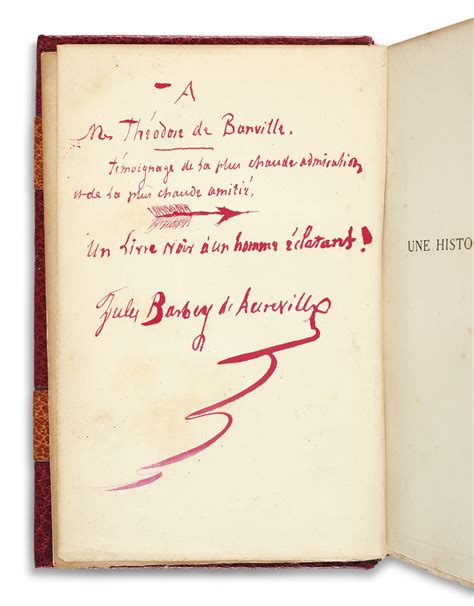 A
Mr Théodore de Banville.
témoignage de la plus chaude admiration
et de la plus chaude amitié,
Un Livre Noir à un homme éclatant!
Jules Barbey d'Aurevilly
UNE HISTO